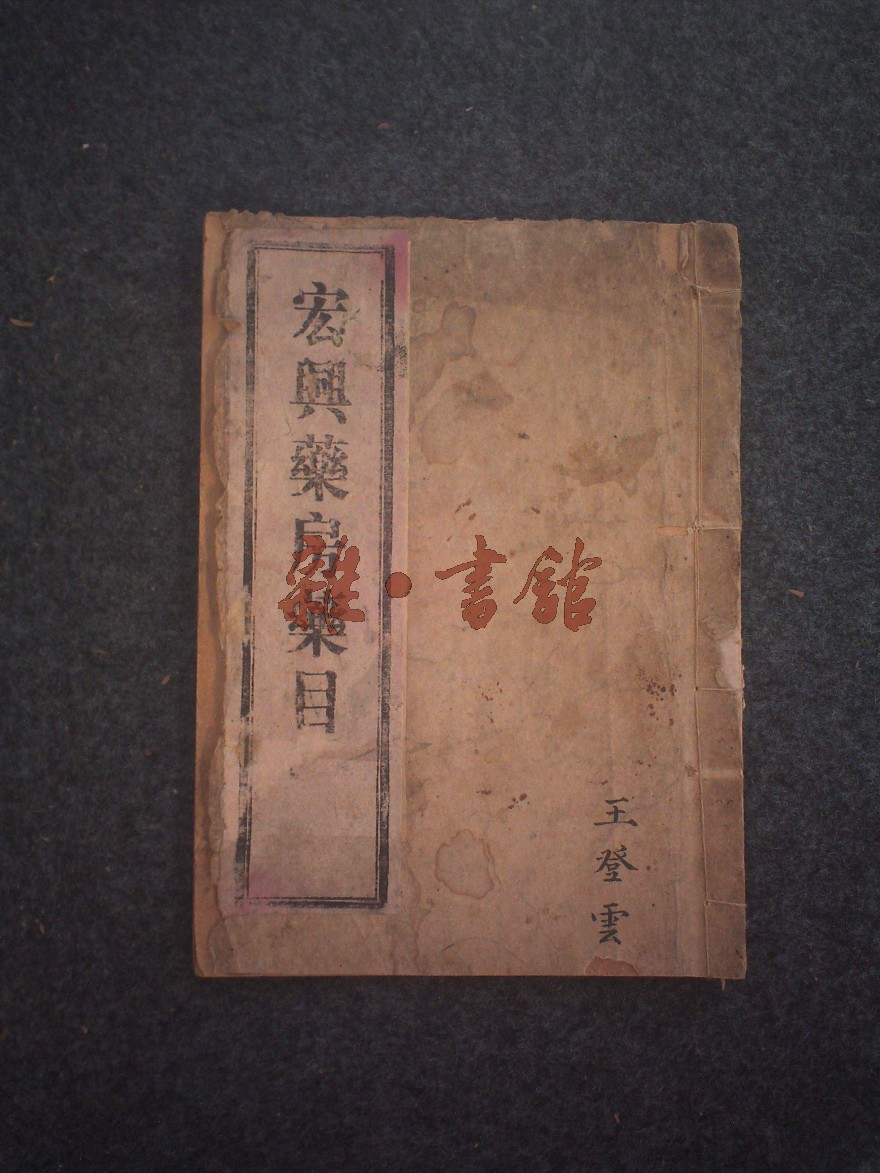 宏興藥房藥目
王登雲
雜·書館